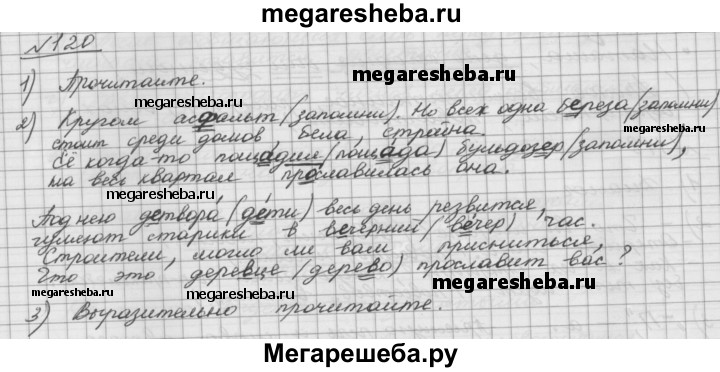 megaresheba.ru
№120
1) Прочитайте.
megaresheba.ru
megaresheba.ru
2) Кругом асфальт (запомни). Но всех одна береза (запомни)
стоит среди домов бела, стройна.
megaresheba.ru
Её когда-то пощадил (пощада) бульдозер (запомни),
на весь квартал прославилась она.
megaresheba.ru
Под нею детвора (дети) весь день резвится,
гуляют старики в вечерний (вечер) час.
Строители, могло ли вам присниться,
Что это деревце (дерево) прославит вас?
megaresheba.ru
megaresheba.ru
3) Выразительно прочитайте.
Мегарешеба.ру